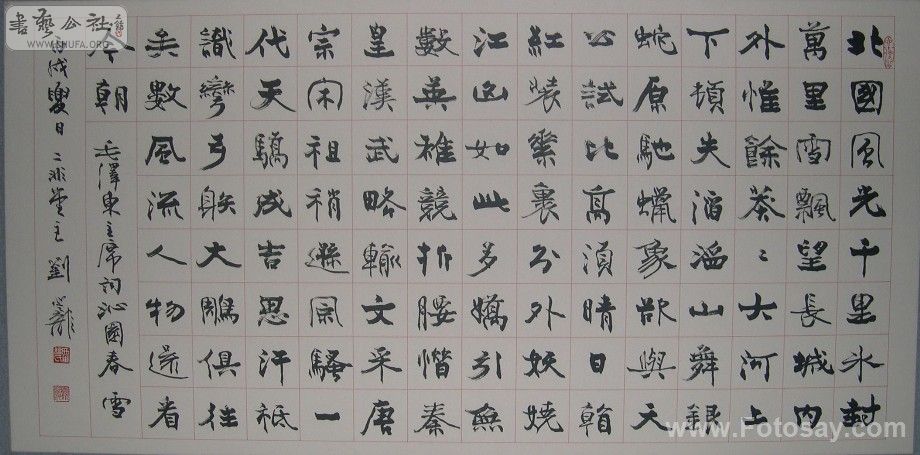 北國風光千里冰封
萬里雪飄望長城內
外惟餘莽〻大河上
下頓失滔滔山舞銀
蛇原馳蠟象欲與天
公試比高須晴日看
紅裝素裹分外妖嬈
江山如此多嬌引無
數英雄競折腰惜秦
皇漢武略輸文采唐
宗宋祖稍遜風騷一
代天驕成吉思汗祇
識彎弓射大雕俱往
矣數風流人物還看
今朝 毛澤東主席詞沁園春 雪
戌夏日二堂主劉
書藝公社
WWW.SHUFA.ORG
www.Fotosay.com